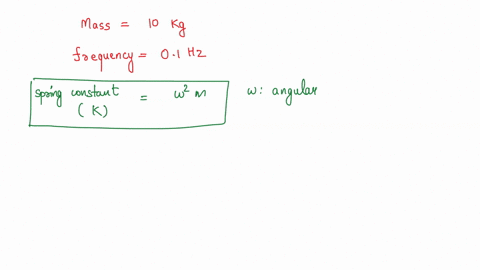 Mass = 10 Kg
frequency = 0.1 Hz
spring constant (K) = ω² m
ω: angular